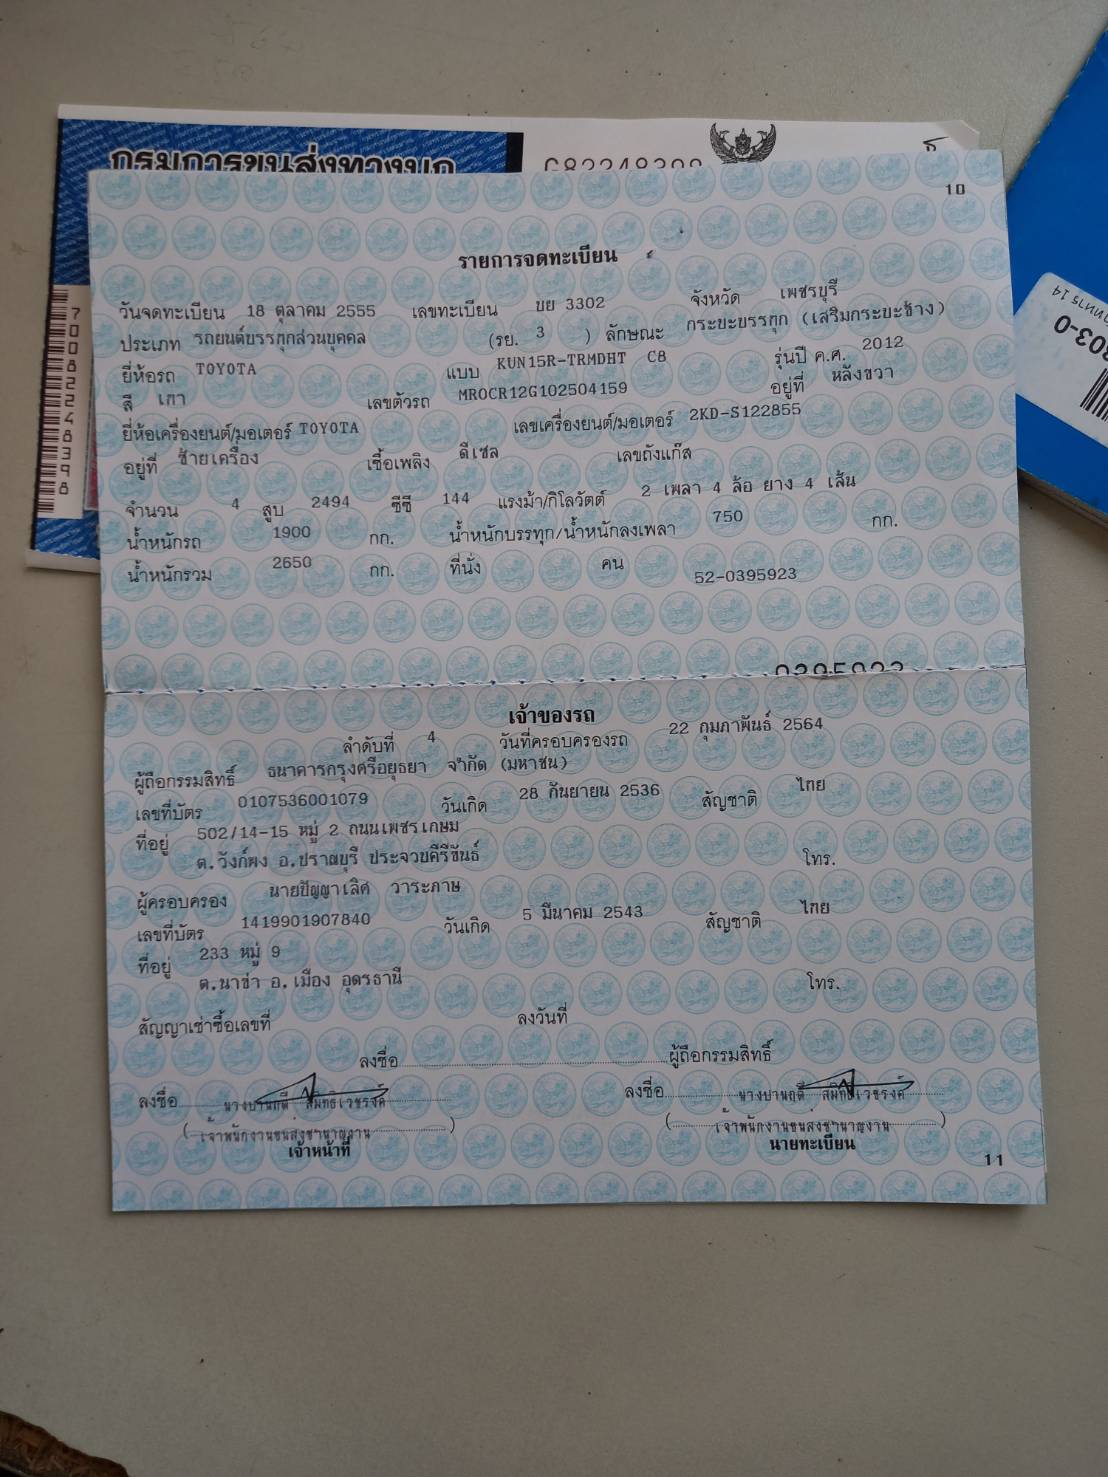 กรมการขนส่งทางบก
10
รายการจดทะเบียน
วันจดทะเบียน 18 ตุลาคม 2555 เลขทะเบียน บย 3302 จังหวัด เพชรบุรี
ประเภท รถยนต์บรรทุกส่วนบุคคล (รย. 3 ) ลักษณะ กระบะบรรทุก (เสริมกระบะข้าง)
ยี่ห้อรถ TOYOTA แบบ KUN15R-TRMDHT C8 รุ่นปี ค.ศ. 2012
สี เทา เลขตัวรถ MROCR12G102504159 อยู่ที่ หลังขวา
ยี่ห้อเครื่องยนต์/มอเตอร์ TOYOTA เลขเครื่องยนต์/มอเตอร์ 2KD-S122855
อยู่ที่ ซ้ายเครื่อง เชื้อเพลิง ดีเซล เลขถังแก๊ส
จำนวน 4 สูบ 2494 ซีซี 144 แรงม้า/กิโลวัตต์ 2 เพลา 4 ล้อ ยาง 4 เส้น
น้ำหนักรถ 1900 กก. น้ำหนักบรรทุก/น้ำหนักลงเพลา 750 กก.
น้ำหนักรวม 2650 กก. ที่นั่ง คน
52-0395923
เจ้าของรถ
ลำดับที่ 4 วันที่ครอบครองรถ 22 กุมภาพันธ์ 2564
ผู้ถือกรรมสิทธิ์ ธนาคารกรุงศรีอยุธยา จำกัด (มหาชน)
เลขที่บัตร 0107536001079 วันเกิด 28 กันยายน 2536 สัญชาติ ไทย
ที่อยู่ 502/14-15 หมู่ 2 ถนนเพชรเกษม
ต.วังก์พง อ.ปราณบุรี ประจวบคีรีขันธ์ โทร.
ผู้ครอบครอง นายปัญญาเลิศ วาระภาษ
เลขที่บัตร 1419901907840 วันเกิด 5 มีนาคม 2543 สัญชาติ ไทย
ที่อยู่ 233 หมู่ 9
ต.นาข่า อ.เมือง อุดรธานี โทร.
สัญญาเช่าซื้อเลขที่ ลงวันที่
ลงชื่อ ผู้ถือกรรมสิทธิ์
ลงชื่อ ลงชื่อ
(เจ้าพนักงานขนส่งชำนาญงาน) (เจ้าพนักงานขนส่งชำนาญงาน)
เจ้าหน้าที่ นายทะเบียน
11